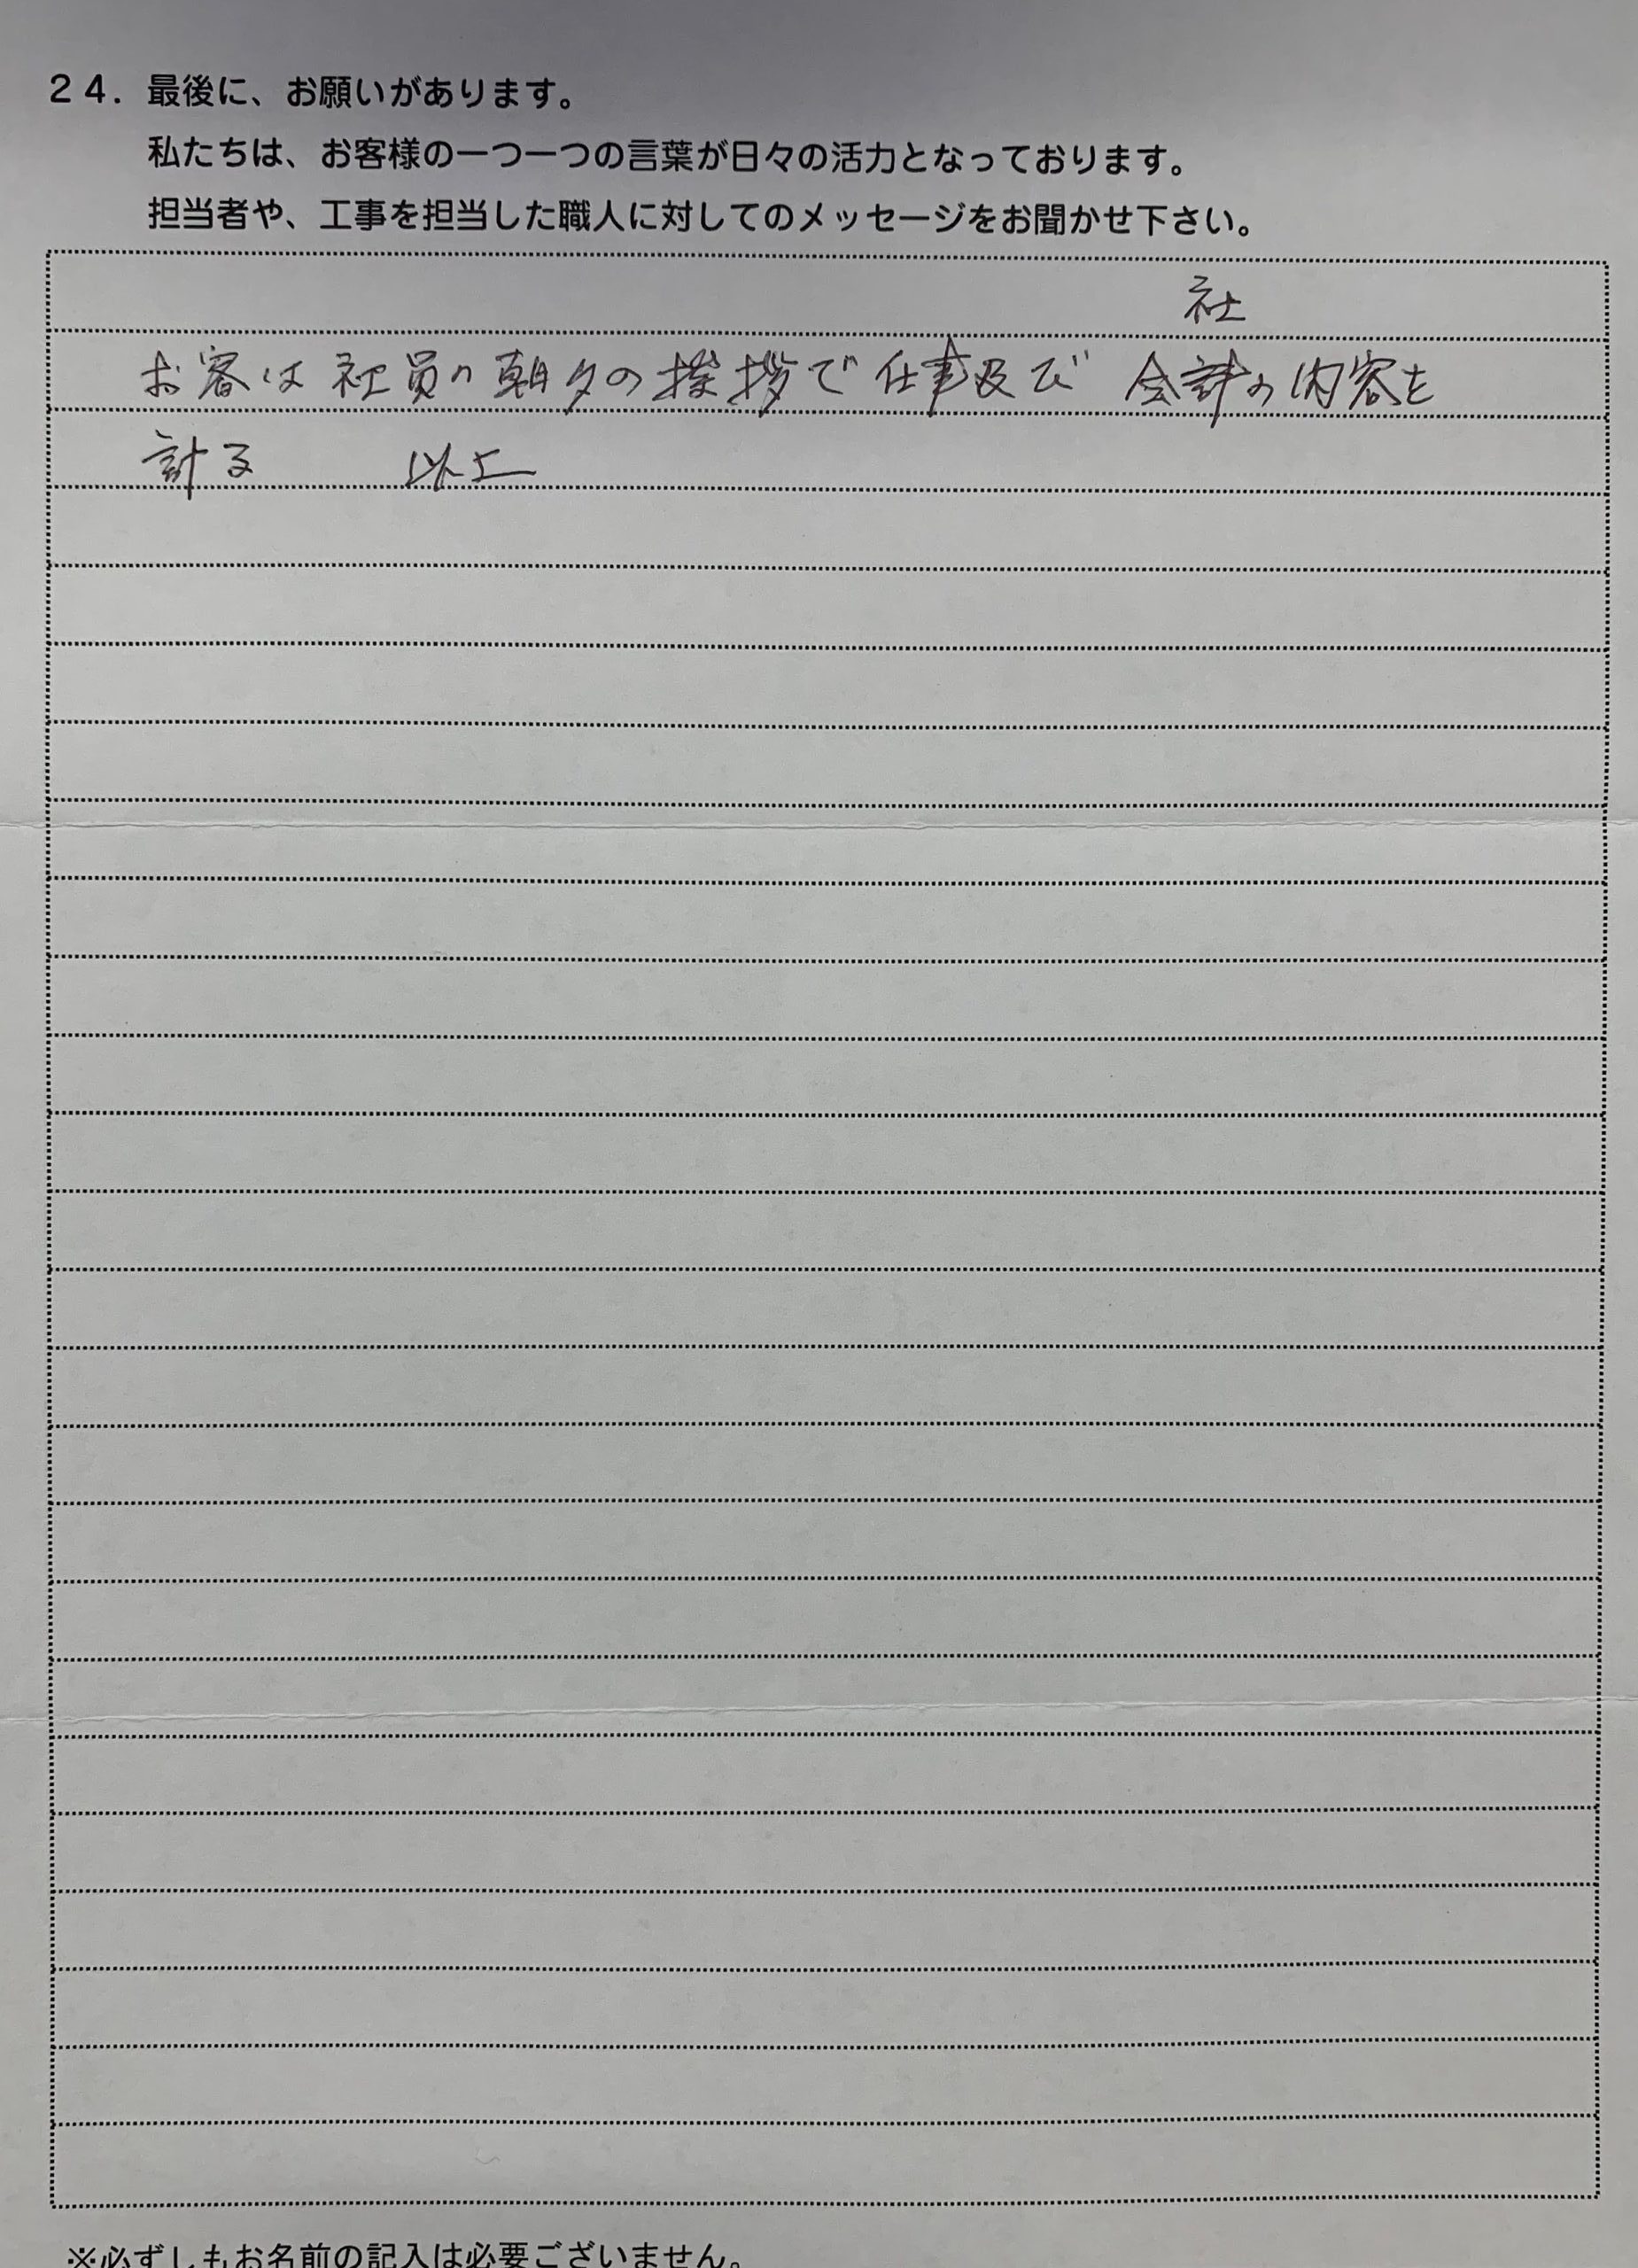 24. 最後に、お願いがあります。
私たちは、お客様の一つ一つの言葉が日々の活力となっております。
担当者や、工事を担当した職人に対してのメッセージをお聞かせ下さい。
社
お客は社員の朝夕の挨拶で仕事及び会計の内容を
計る 以上
※必ずしもお名前の記入は必要ございません。